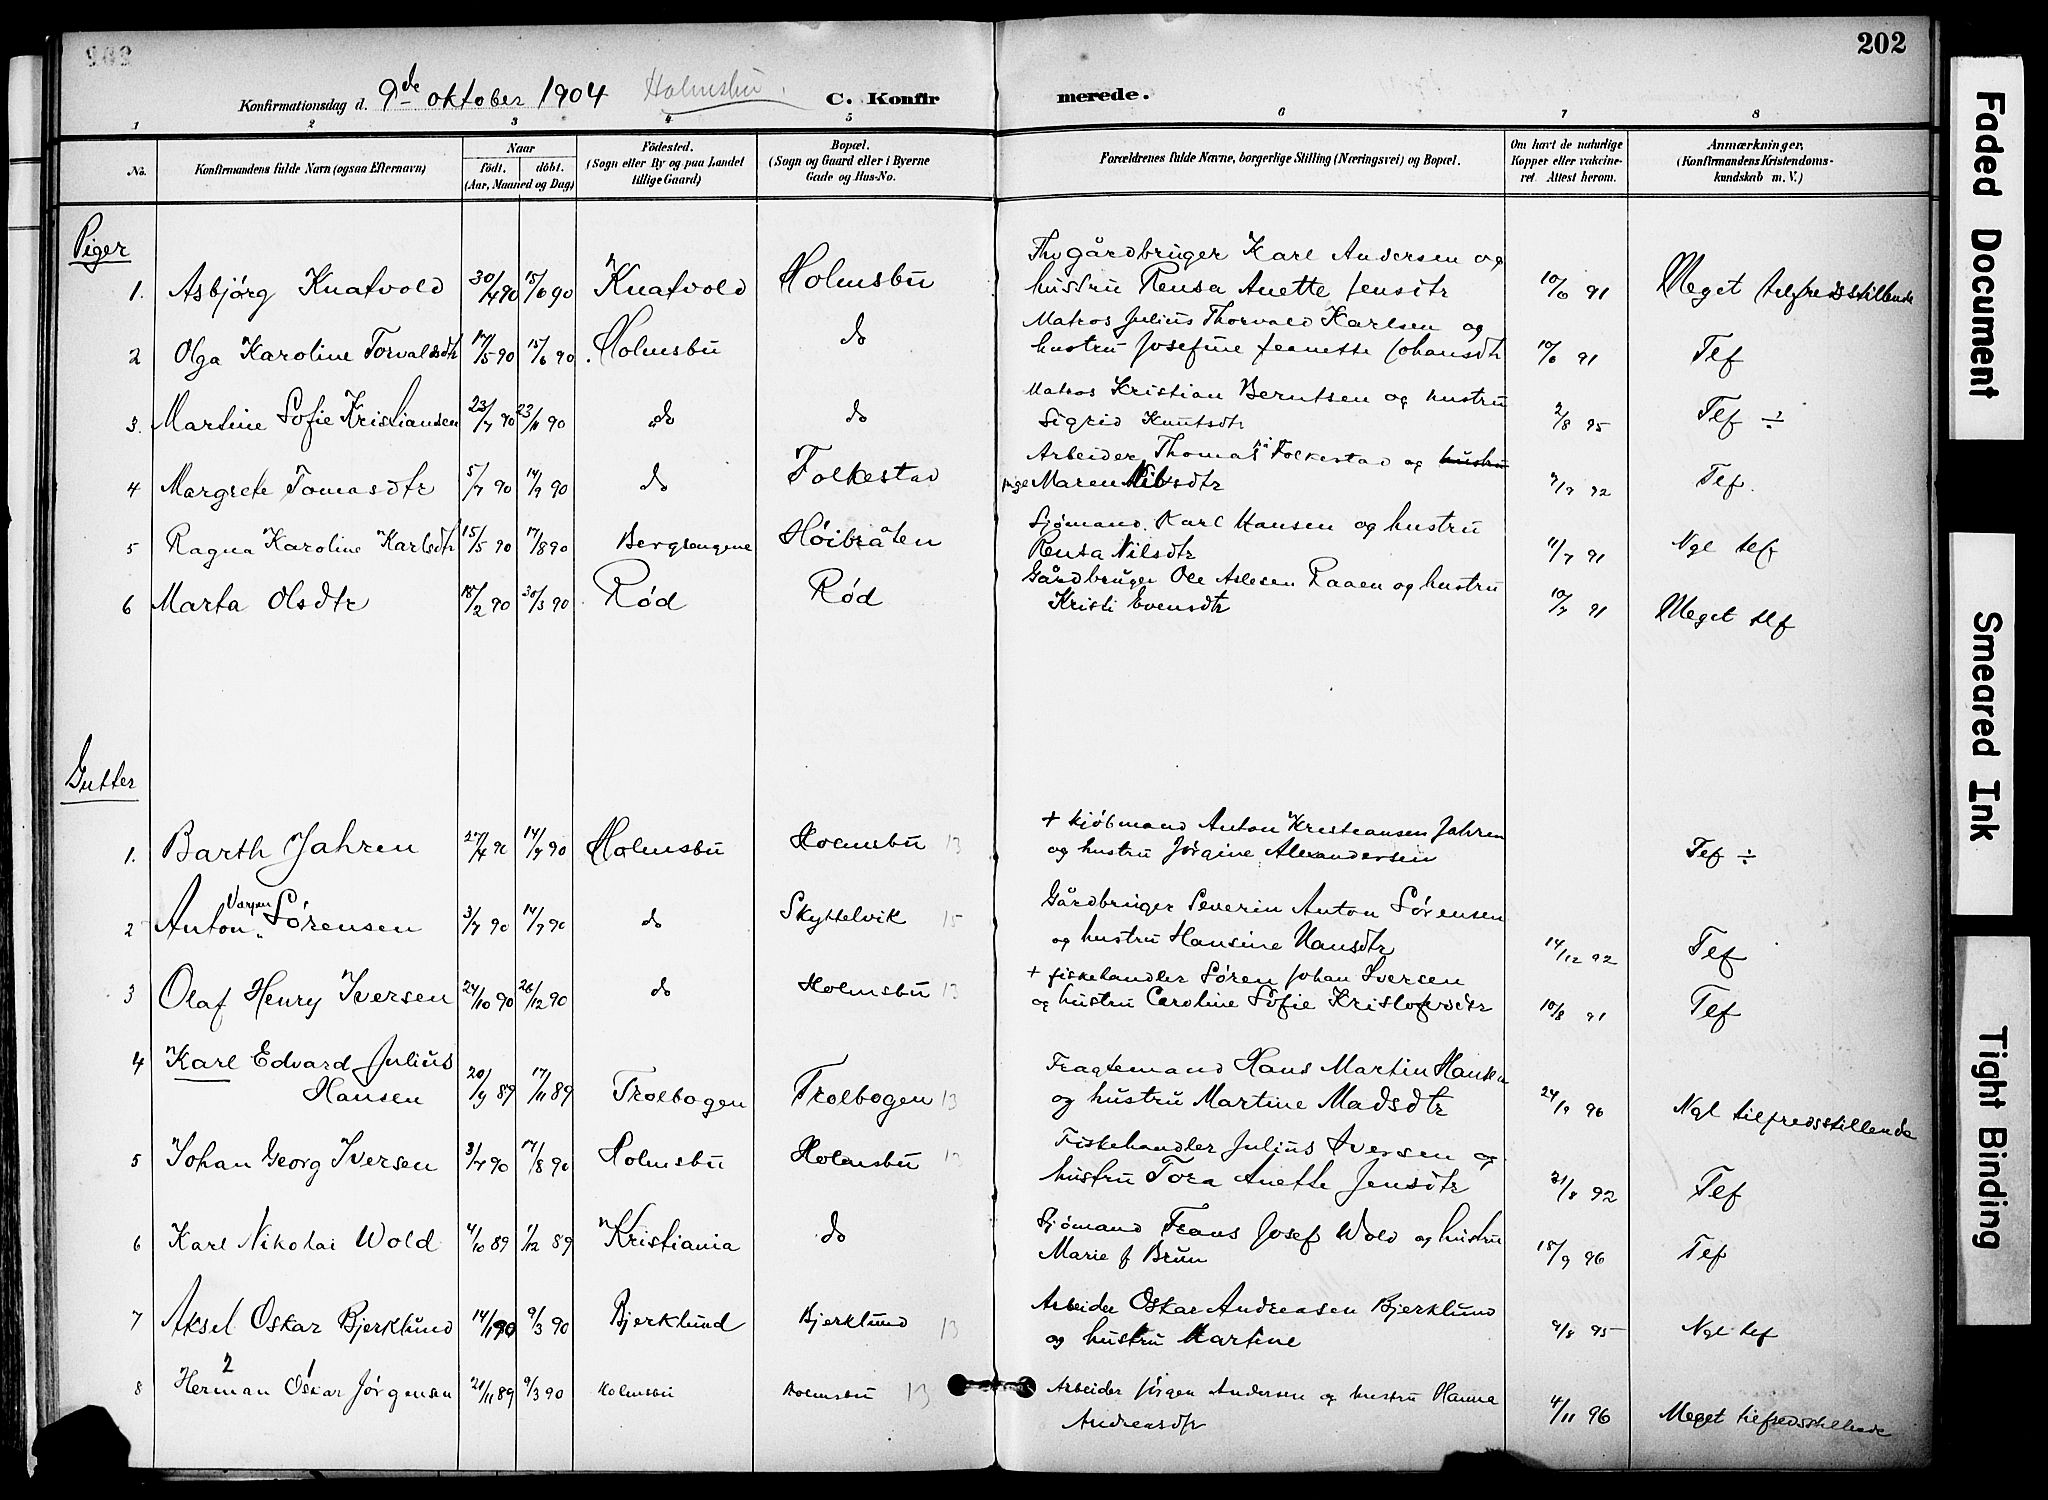 202
202
Konfirmationsdag d. 9de oktober 1904 Holmsbu. C. Konfir merede.
1 2 3 4 5 6 7 8
No. Konfirmandens fulde Navn (ogsaa Efternavn) Naar født. døbt. (Aar, Maaned og Dag) Fødested. (Sogn eller By og paa Landet tillige Gaard) Bopæl. (Sogn og Gaard eller i Byerne Gade og Hus-No. Forældrenes fulde Navne, borgerlige Stilling (Næringsvei) og Bopæl. Om havt de naturlige Kopper eller vakcineret. Attest herom. Anmærkninger. (Konfirmandens Kristendomskundskab m. V.)
Piger
1. Asbjørg Knatvold 30/4 90 15/6 90 Knatvold Holmsbu gårdbruger Karl Andersen og
hustru Rensa Anette Jensdtr 10/6 91 Meget tilfredsstillende
2 Olga Karoline Torvaldsdtr 17/5 90 15/6 90 Holmsbu do Matros Julius Thorvald Karlsen og
hustru Josefine Jeanette Johansdtr 10/6 91 Tef
3. Martine Sofie Kristiansen 23/7 90 23/11 90 do do Matros Kristian Berntsen og hustru
Sigrid Knutsdtr 2/8 95 Tef ÷
4 Margrete Tomasdtr 5/7 90 14/9 90 do Folkestad Arbeider Thomas Folkestad og hustru
pige Maren Nilsdtr 9/9 92 Tef.
5 Ragna Karoline Karlsdtr 15/5 90 17/8 90 Bergsengene Høibråten Sjømand Karl Hansen og hustru
Rensa Nilsdtr 11/7 91 Ngl tef
6 Marta Olsdtr 18/2 90 30/3 90 Rød Rød Gårdbruger Ole Aslesen Raaen og hustru
Kristi Evensdtr 10/7 91 Meget tlf
Gutter
1. Barth Jahren 27/4 90 14/7 90 Holmsbu Holmsbu 13 + kjøbmand Anton Kristiansen Jahren
og hustru Jørgine Alexandersen Tef ÷
2 Anton Vargen Sørensen 3/7 90 14/7 90 do Skyttelvik 15 Gårdbruger Severin Anton Sørensen
og hustru Hansine Hansdtr 14/12 92 Tef
3 Olaf Henry Iversen 24/10 90 26/12 90 do Holmsbu 13 + fiskehandler Søren Johan Iversen
og hustru Caroline Sofie Kristofersdtr 10/8 91 Tef
4 Karl Edvard Julius
Hansen 20/9 89 17/11 89 Trolbogen Trolbogen 13 Fragtemand Hans Martin Hansen
og hustru Martine Madsdtr 24/9 96 Ngl tilfredsstillende
5 Johan Georg Iversen 3/7 90 17/8 90 Holmsbu Holmsbu 13 Fiskehandler Julius Iversen og
hustru Tora Anette Jensdtr 21/8 92 Tef
6 Karl Nikolai Wold 4/10 89 1/12 89 Kristiania do Sjømand Frans Josef Wold og hustru
Marie f Brun 18/9 96 Tef
7 Aksel Oskar Bjerklund 14/1 90 9/3 90 Bjerklund Bjerklund 13 Arbeider Oskar Andreasen Bjerklund
og hustru Martine 9/8 95 Ngl tef
2 1
8 Herman Oskar Jørgensen 21/11 89 9/3 90 Holmsbu Holmsbu 13 Arbeider Jørgen Andersen og hustru Hanna
Andreasdtr 4/11 96 Meget tilfredsstillende
Faded Document
Smeared Ink
Tight Binding